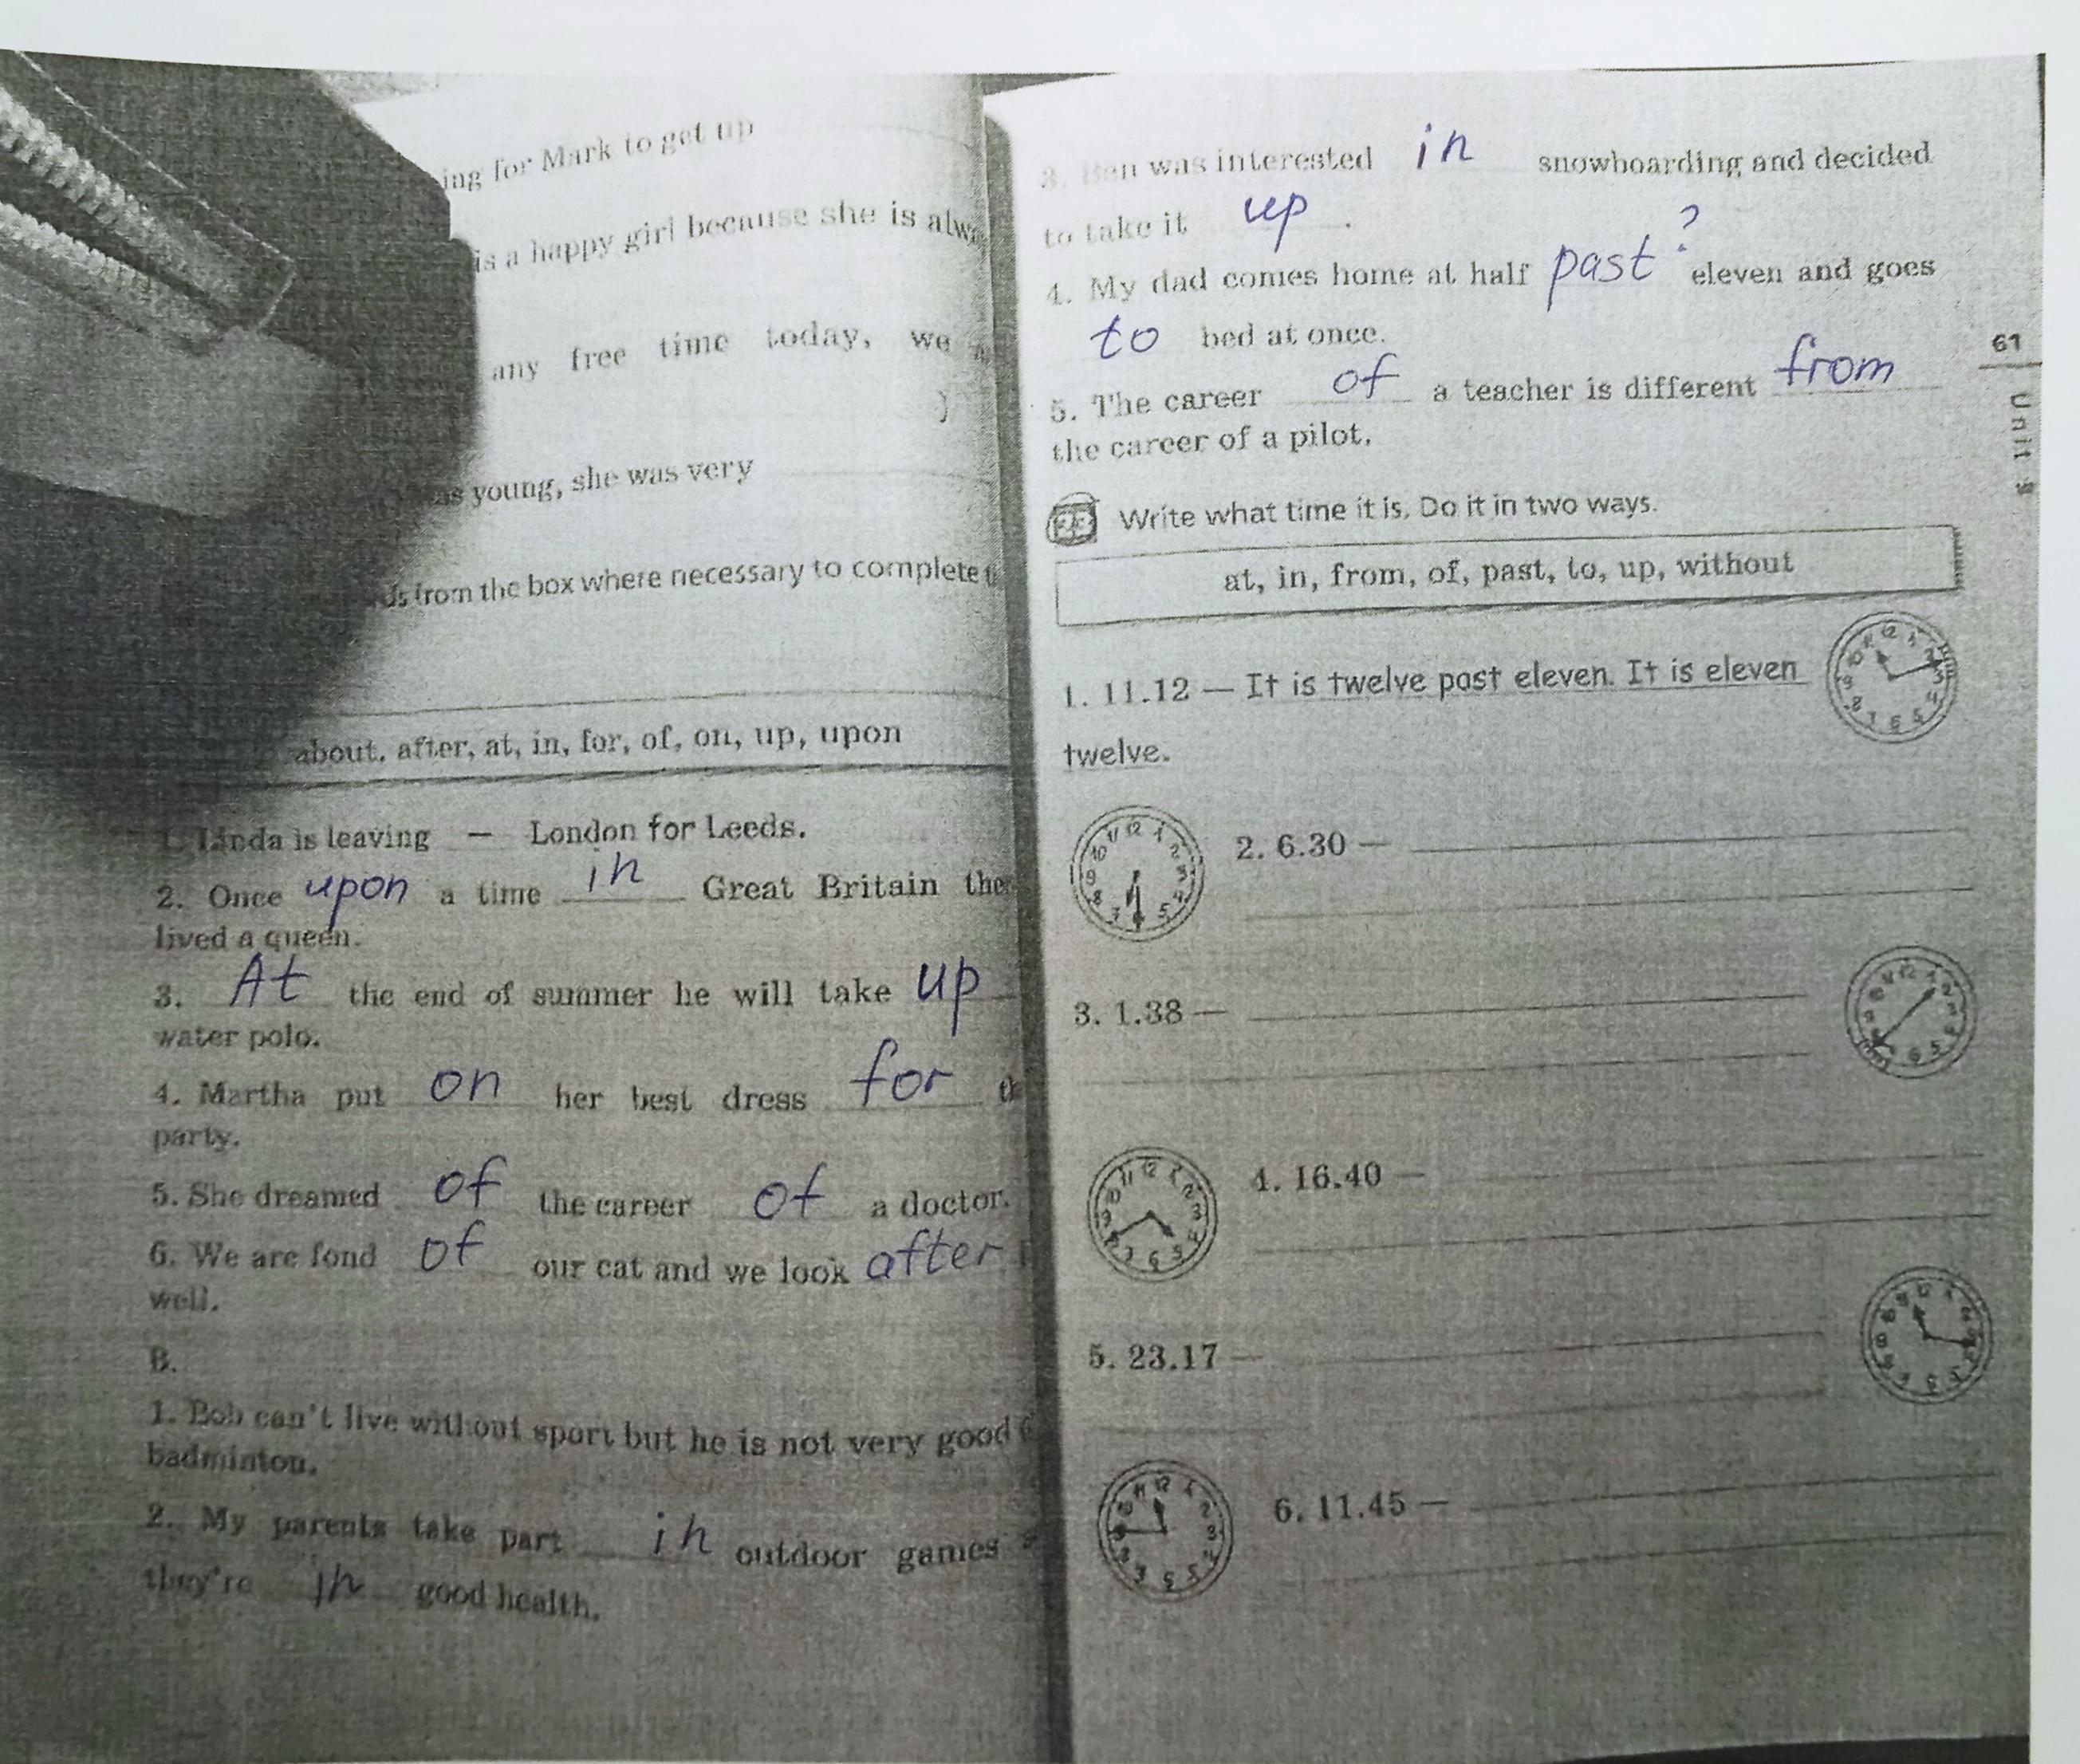 ing for Mark to get up
is a happy girl because she is
any free time today, we
young, she was very
from the box where necessary to complete
about, after, at, in, for, of, on, up, upon
1. Linda is leaving — London for Leeds.
2. Once upon a time in Great Britain
lived a queen.
3. At the end of summer he will take up
water polo.
4. Martha put on her best dress for
party.
5. She dreamed of the career of a doctor.
6. We are fond of our cat and we look after
well.
B.
1. Bob can't live without sport but he is not very good
badminton.
2. My parents take part in outdoor games
they're in good health.
3. Ben was interested in snowboarding and decided
to take it up.
4. My dad comes home at half past ? eleven and goes
to bed at once.
5. The career of a teacher is different from
the career of a pilot.
61
Unit
Write what time it is. Do it in two ways.
at, in, from, of, past, to, up, without
1. 11.12 — It is twelve past eleven. It is eleven
twelve.
2. 6.30 —
3. 1.38 —
4. 16.40 —
5. 23.17 —
6. 11.45 —